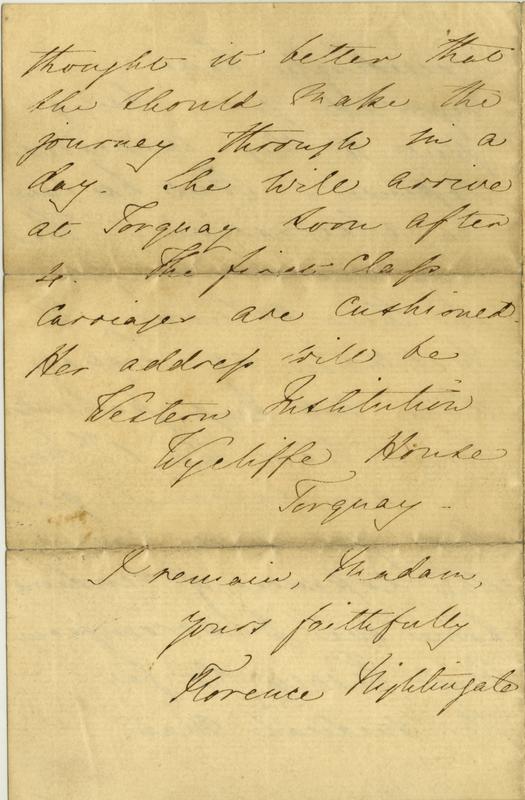 thought it better that
she should make the
journey through in a
day. She will arrive
at Torquay soon after
4. The first class
carriages are cushioned.
Her address will be
Western Institution
Wycliffe House
Torquay -
I remain, Madam,
yours faithfully
Florence Nightingale